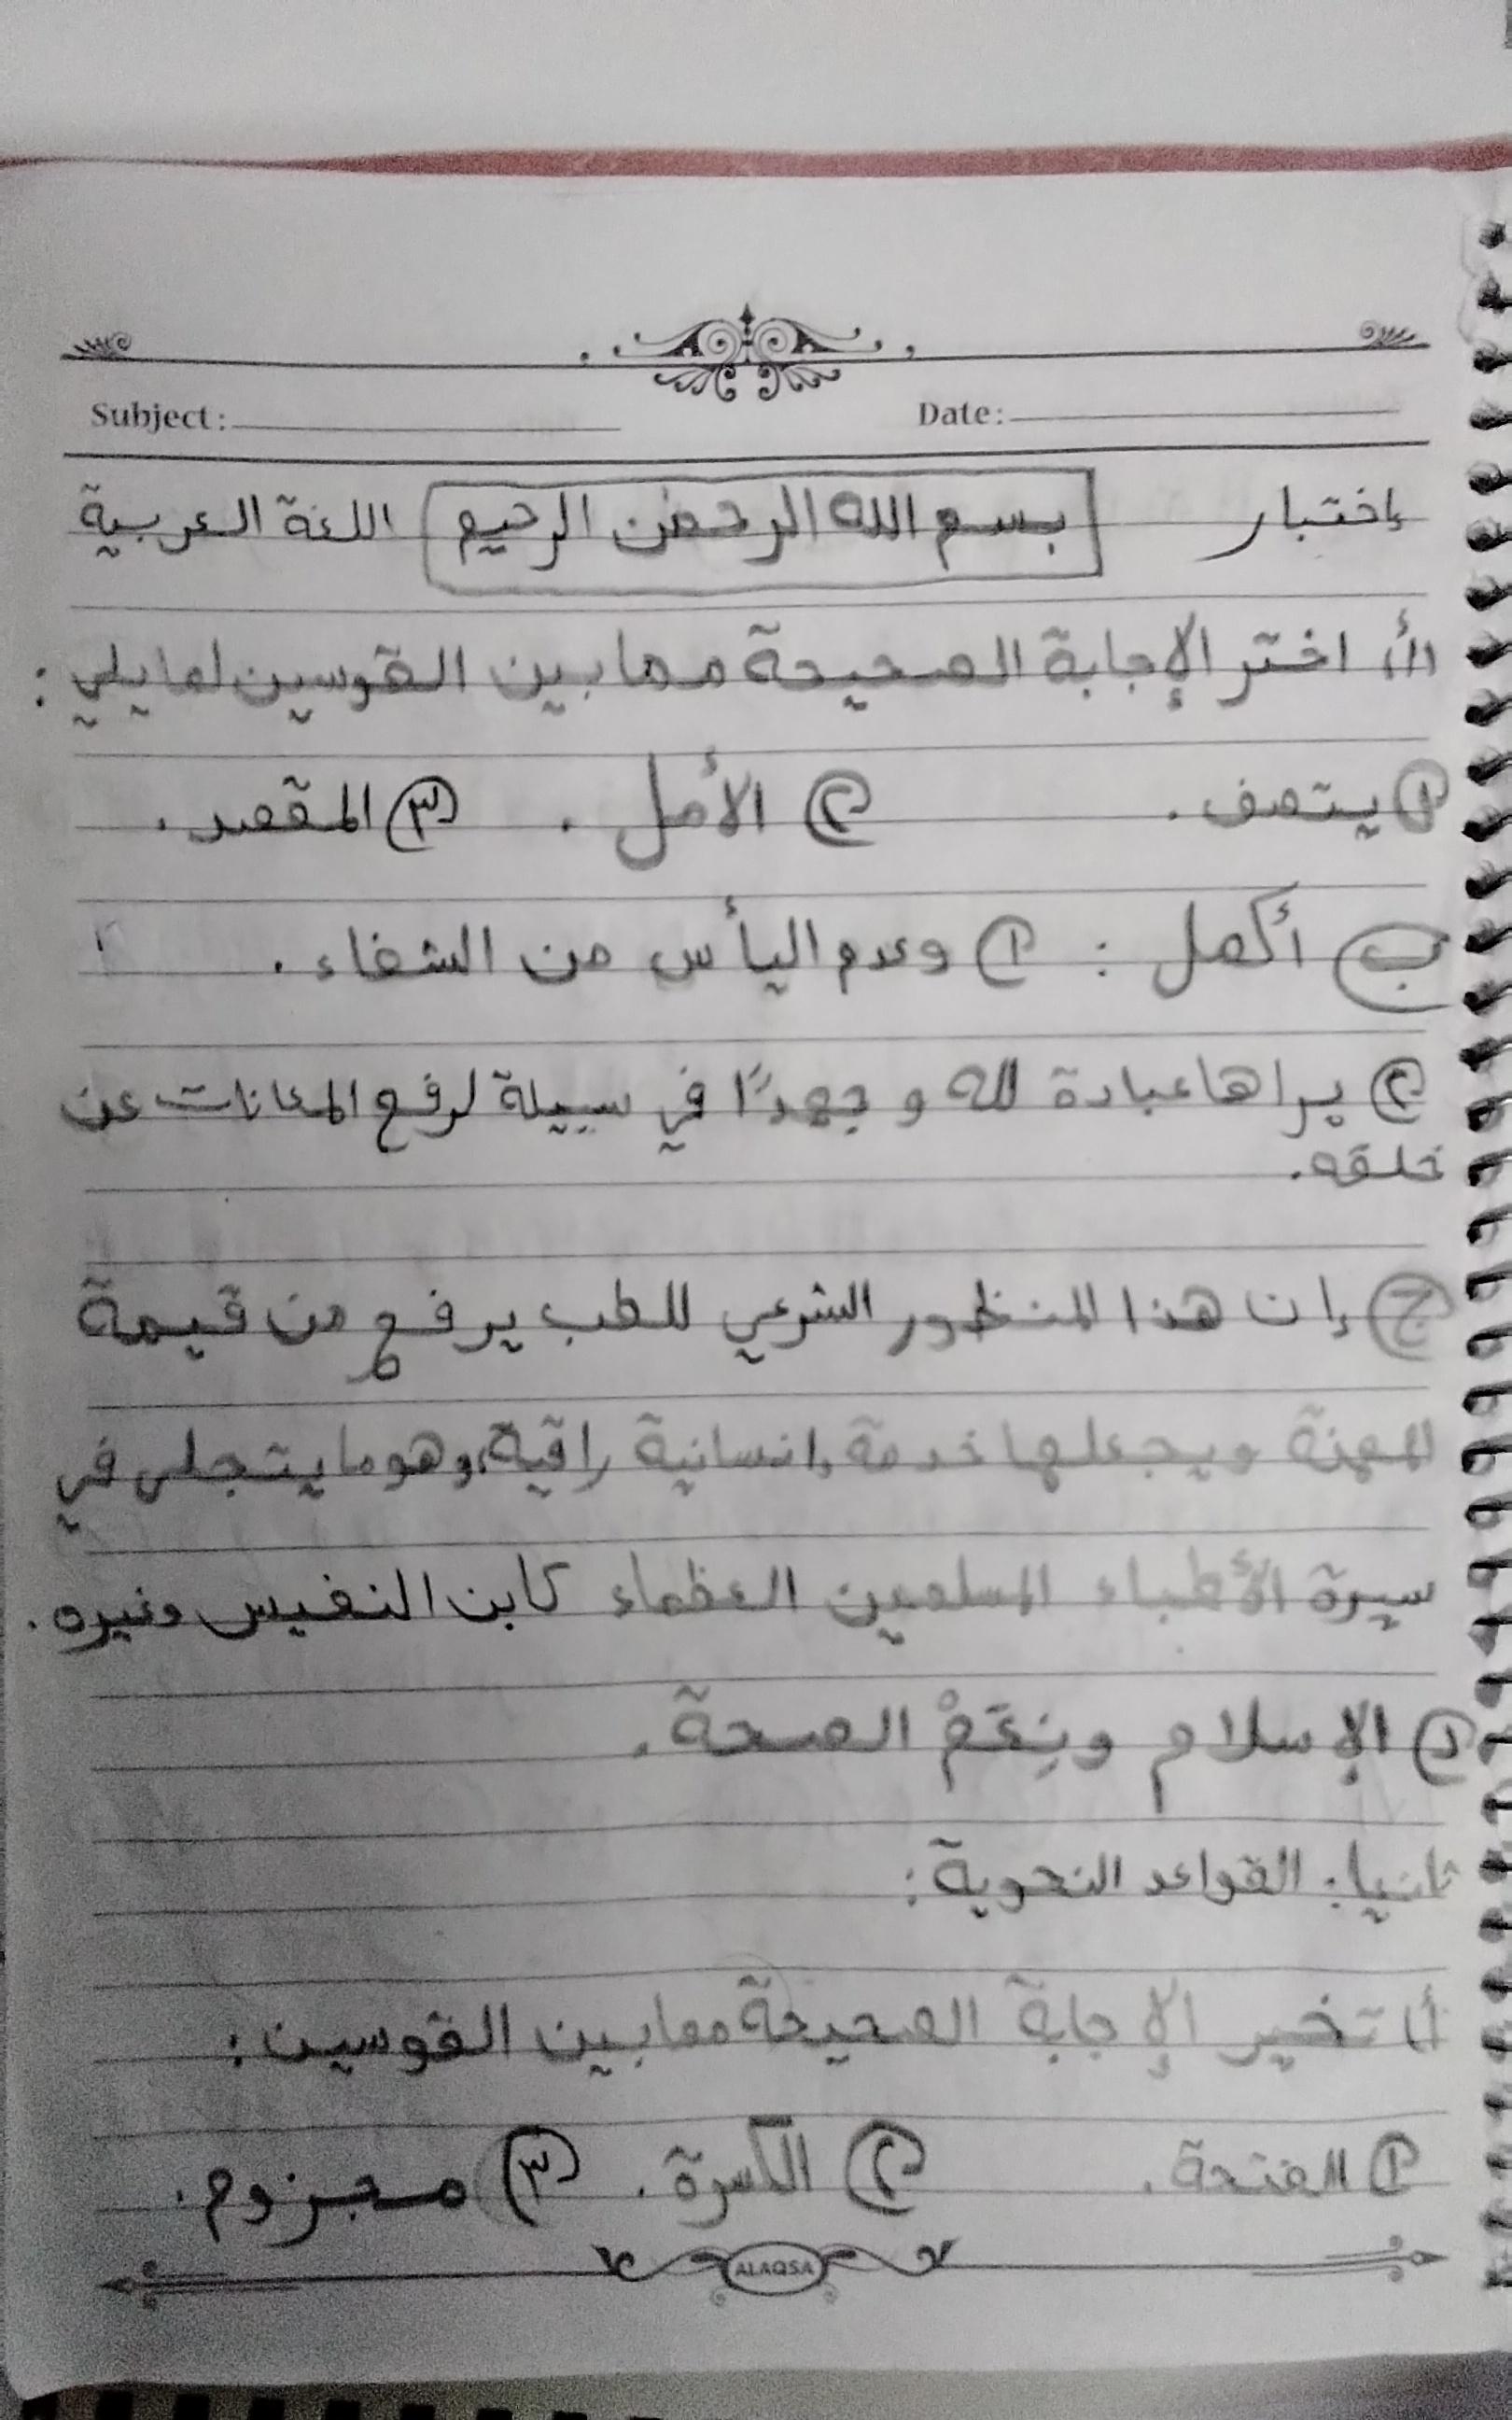 Subject: Date:
إختبار بسم الله الرحمن الرحيم اللغة العربية
أ/ اختر الإجابة الصحيحة مما بين القوسين لما يلي :
١ يتصف . ٢ الأمل . ٣ المقصد .
ب أكمل : ١ وعدم اليأس من الشفاء .
٢ يراها عبادة لله و جهدًا في سبيلة لرفع المعانات عن
خلقه .
ج إن هذا المنظور الشرعي للطب يرفع من قيمة
المهنة ويجعلها خدمة إنسانية راقية، وهو ما يتجلى في
سيرة الأطباء المسلمين العظماء كابن النفيس وغيره .
د الإسلام ونِعَمْ الصحة .
ثانيا: القواعد النحوية :
أ/ تخير الإجابة الصحيحة مما بين القوسين :
١ الفتحة . ٢ الكسرة . ٣ مجزوم .
ALAQSA